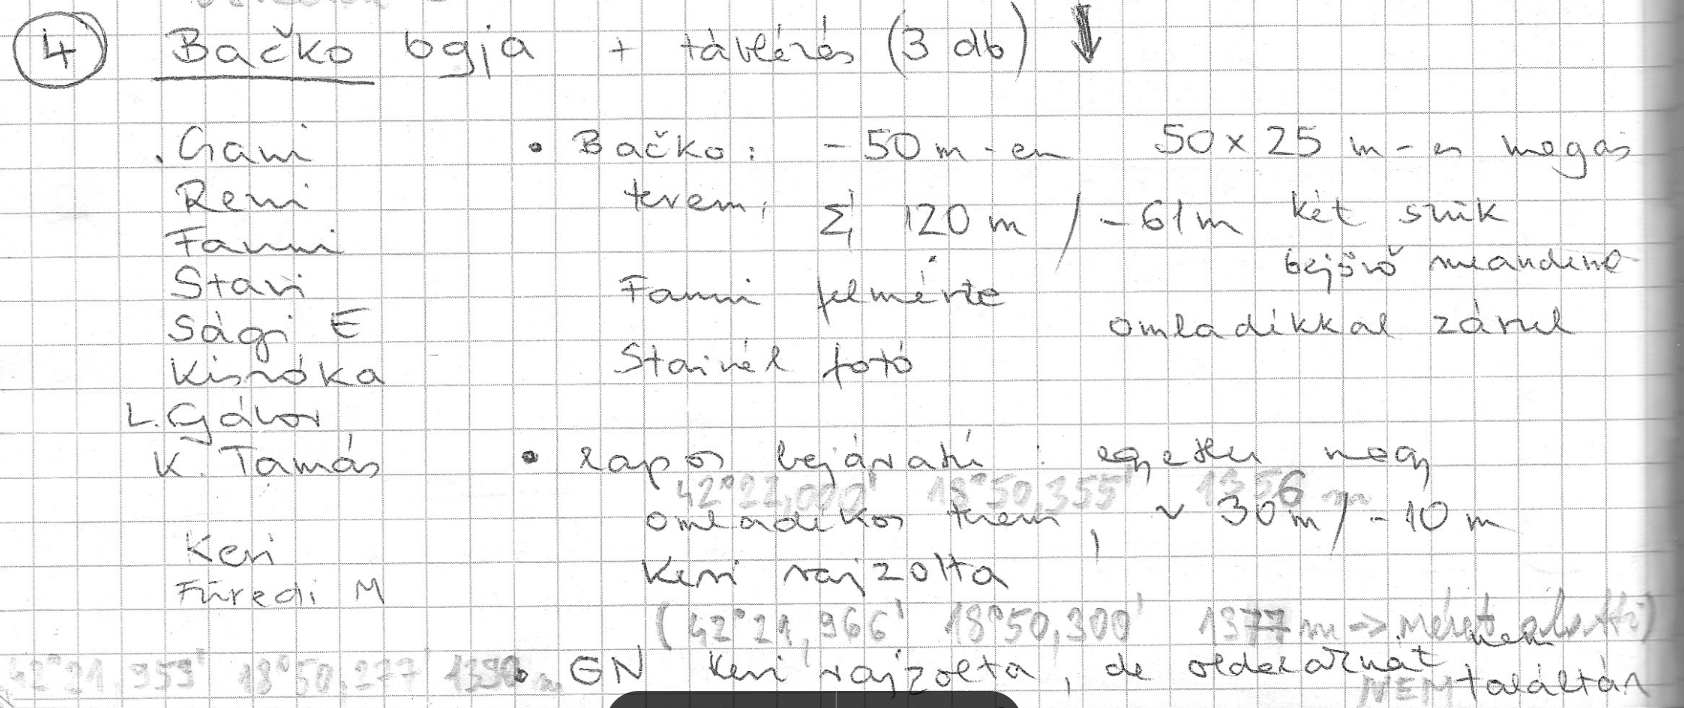 4 Bačko bgja + táblázás (3 db) ↓
Gani
Remi
Fanni
Stavi
Sági E
Kisróka
L. Gábor
K. Tamás
Keri
Füredi M
• Bačko: -50 m-en 50 x 25 m-es magas
terem, Σ 120 m / -61 m két szűk
bejövő meander
Fanni felmérte omladékkal zárul
Stavival fotó
• lapos bejáratú: egyetlen nagy
42°22,000' 18°50,355' 1356 m
omladékos terem, ~ 30 m / -10 m
Keri rajzolta
(42°21,966' 18°50,300' 1377 m → méret alatti)
42°21,959' 18°50,277' 1390 m
• GN Keri rajzolta, de oldalaknát nem
NEM találtán